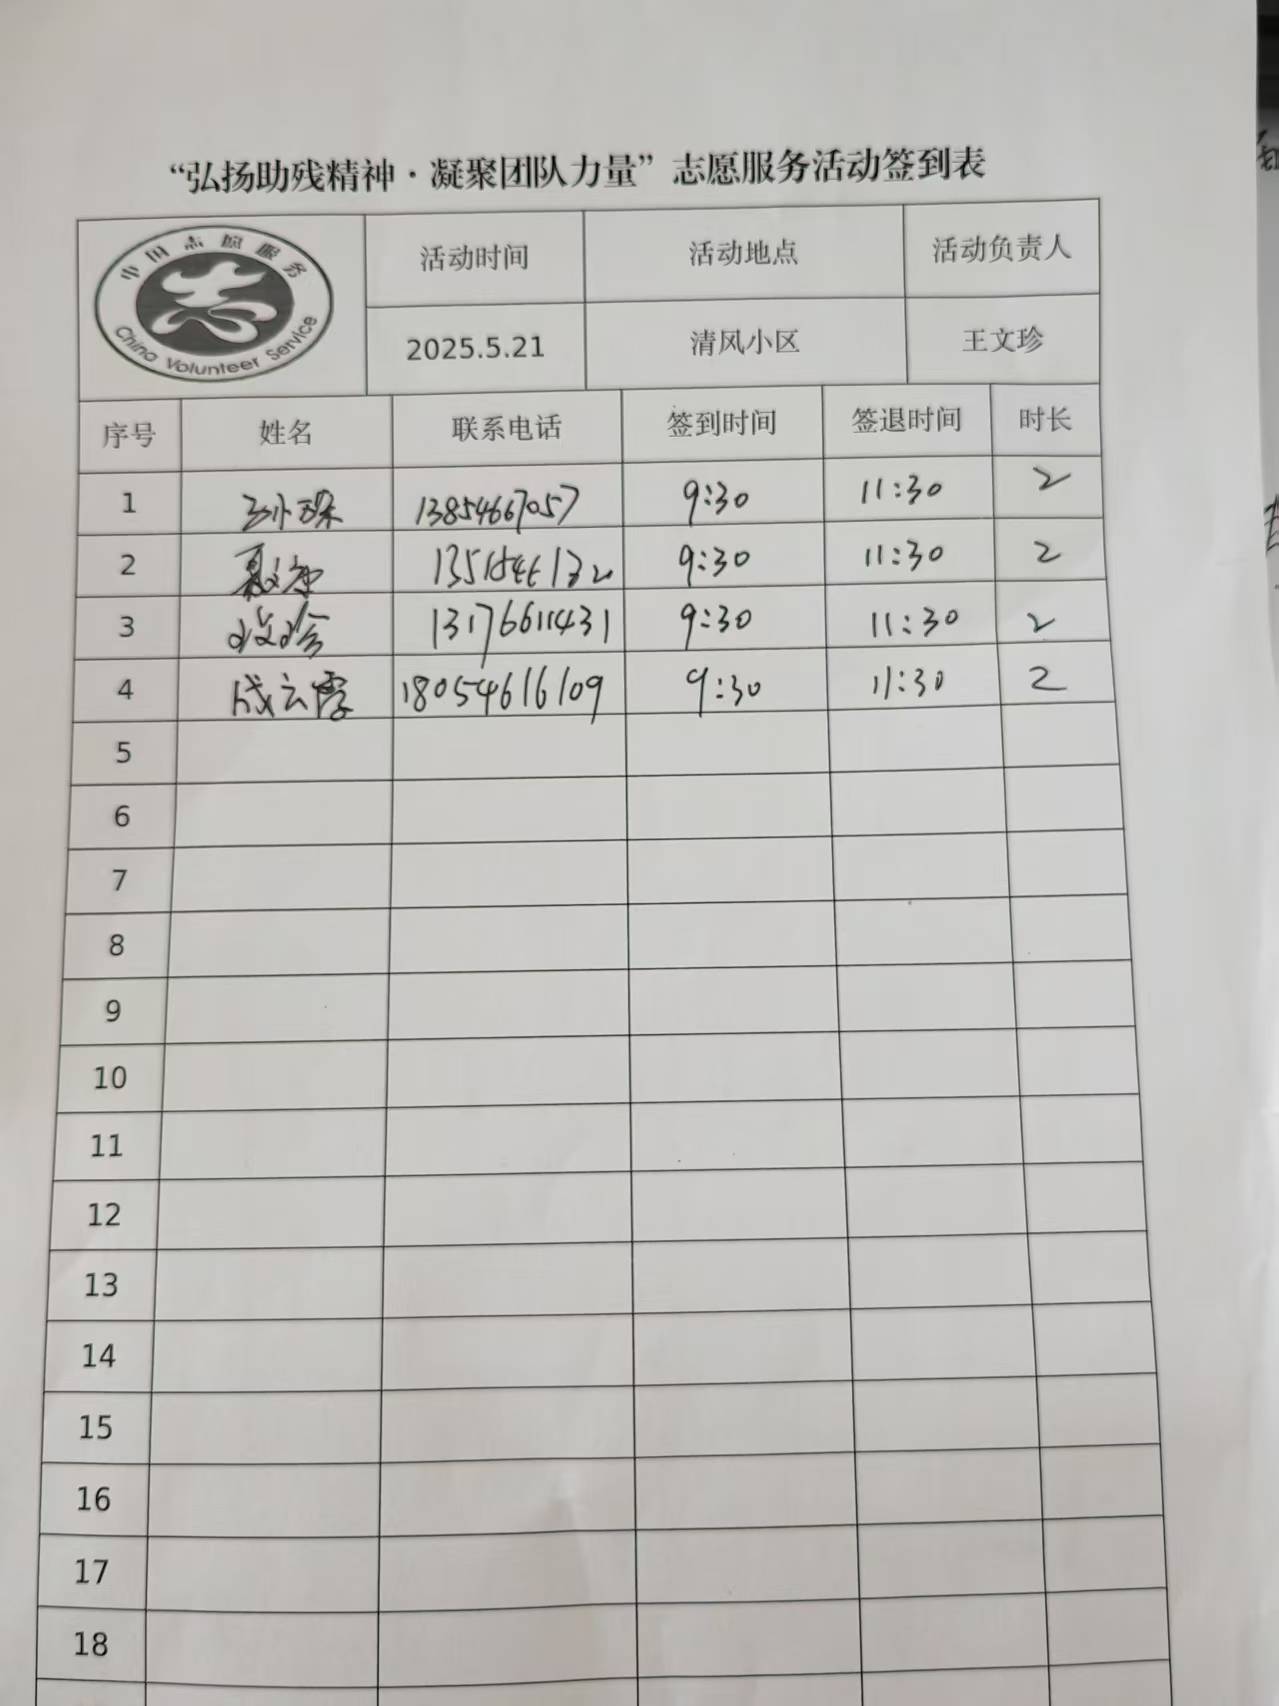 “弘扬助残精神·凝聚团队力量”志愿服务活动签到表
中国志愿服务
China Volunteer Service
活动时间 活动地点 活动负责人
2025.5.21 清风小区 王文珍
序号 姓名 联系电话 签到时间 签退时间 时长
1 孙 9:30 11:30 2
2 9:30 11:30 2
3 13176611431 9:30 11:30 2
4 成云霞 18054616109 9:30 11:30 2
5
6
7
8
9
10
11
12
13
14
15
16
17
18